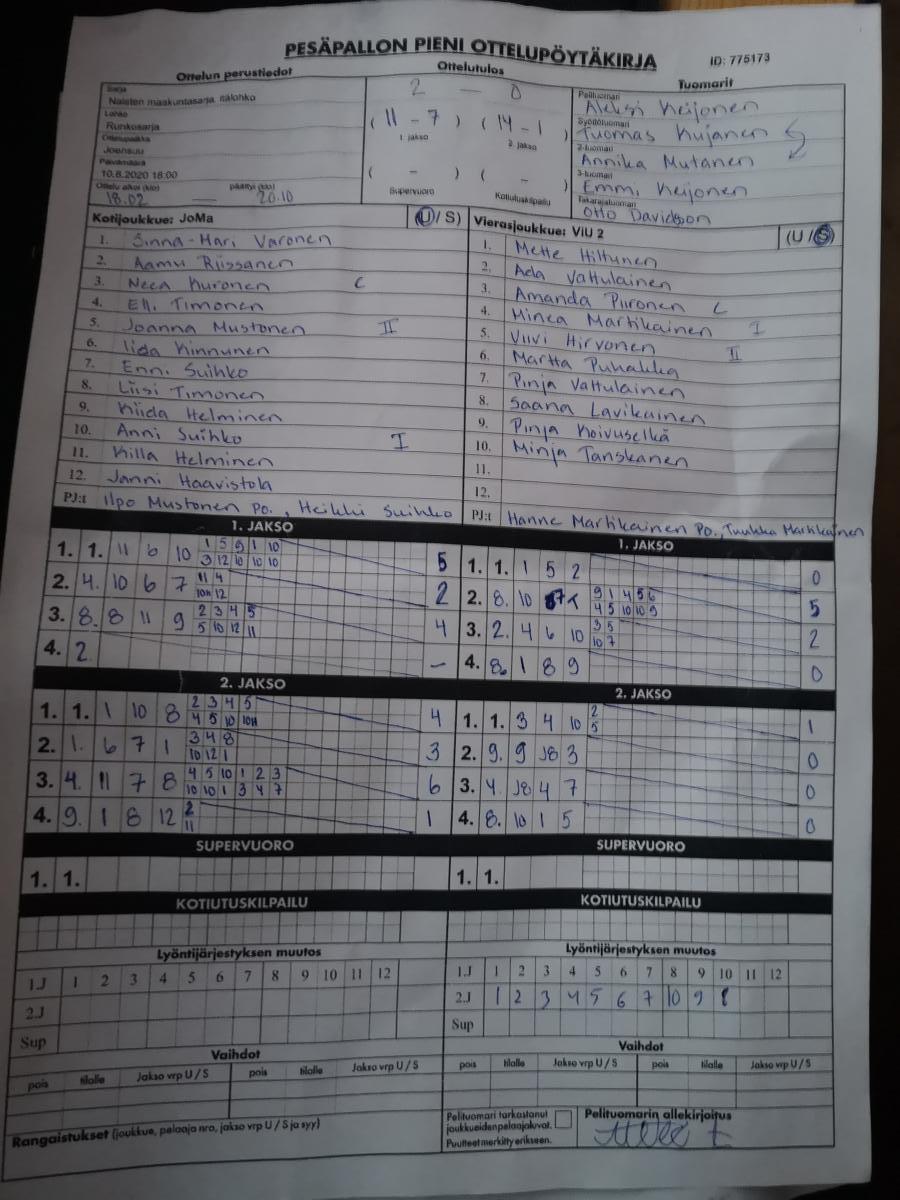 PESÄPALLON PIENI OTTELUPÖYTÄKIRJA
ID: 775173
Ottelun perustiedot
Sarja
Naisten maakuntasarja itälohko
Lohko
Runkosarja
Ottelupaikka
Joensuu
Päivämäärä
10.8.2020 18:00
Ottelu alkoi (klo) päättyi (klo)
18.02 — 20.10
Ottelutulos
2 — 0
( 11 - 7 ) ( 14 - 1 )
1. jakso 2. jakso
( - ) ( - )
Supervuoro Kotiutuskilpailu
Tuomarit
Pelituomari
Aleksi Keijonen
Syöttötuomari
Tuomas Kujanen
2-tuomari
Annika Mutanen
3-tuomari
Emmi Keijonen
Takarajatuomari
Otto Davidsson
Kotijoukkue: JoMa (U / S)
1. Sinna-Mari Varonen
2. Aamu Riissanen
3. Neea Kuronen C
4. Elli Timonen
5. Joanna Mustonen II
6. Iida Kinnunen
7. Enni Suihko
8. Liisi Timonen
9. Kiida Helminen
10. Anni Suihko I
11. Killa Helminen
12. Janni Haavistola
PJ:t Ilpo Mustonen PO., Heikki Suihko
Vierasjoukkue: ViU 2 (U / S)
1. Mette Hiltunen
2. Ada Vattulainen
3. Amanda Piironen C
4. Minea Martikainen I
5. Viivi Hirvonen II
6. Martta Puhakka
7. Pinja Vattulainen
8. Saana Lavikainen
9. Pinja Koivuselkä
10. Minja Tanskanen
11.
12.
PJ:t Hanne Martikainen PO., Tuukka Martikainen
1. JAKSO
1. 1. 11 6 10 1 5 9 1 10 5
3 12 10 10 10
2. 4. 10 6 7 11 4 2
10H 12
3. 8. 8 11 9 2 3 4 5 4
5 10 12 11
4. 2. –
1. JAKSO
1. 1. 1 5 2 0
2. 8. 10 7K 9 1 4 5 6 5
4 5 10 10 9
3. 2. 4 6 10 3 5 2
10 7
4. 8. 1 8 9 0
2. JAKSO
1. 1. 1 10 8 2 3 4 5 4
4 5 10 10H
2. 1. 6 7 1 3 4 8 3
10 12 1
3. 4. 11 7 8 4 5 10 1 2 3 6
10 10 1 3 4 7
4. 9. 1 8 12 2 1
11
2. JAKSO
1. 1. 3 4 10 2 1
5
2. 9. 9 J8 3 0
3. 4. J8 4 7 0
4. 8. 10 1 5 0
SUPERVUORO
1. 1.
SUPERVUORO
1. 1.
KOTIUTUSKILPAILU
KOTIUTUSKILPAILU
Lyöntijärjestyksen muutos
1.J 1 2 3 4 5 6 7 8 9 10 11 12
2.J
Sup
Lyöntijärjestyksen muutos
1.J 1 2 3 4 5 6 7 8 9 10 11 12
2.J 1 2 3 4 5 6 7 10 9 8
Sup
Vaihdot
pois tilalle Jakso vrp U / S pois tilalle Jakso vrp U / S
Vaihdot
pois tilalle Jakso vrp U / S pois tilalle Jakso vrp U / S
Rangaistukset (joukkue, pelaaja nro, jakso vrp U / S ja syy)
Pelituomari tarkastanut
joukkueiden pelaajaluvat.
Puutteet merkitty erikseen.
Pelituomarin allekirjoitus